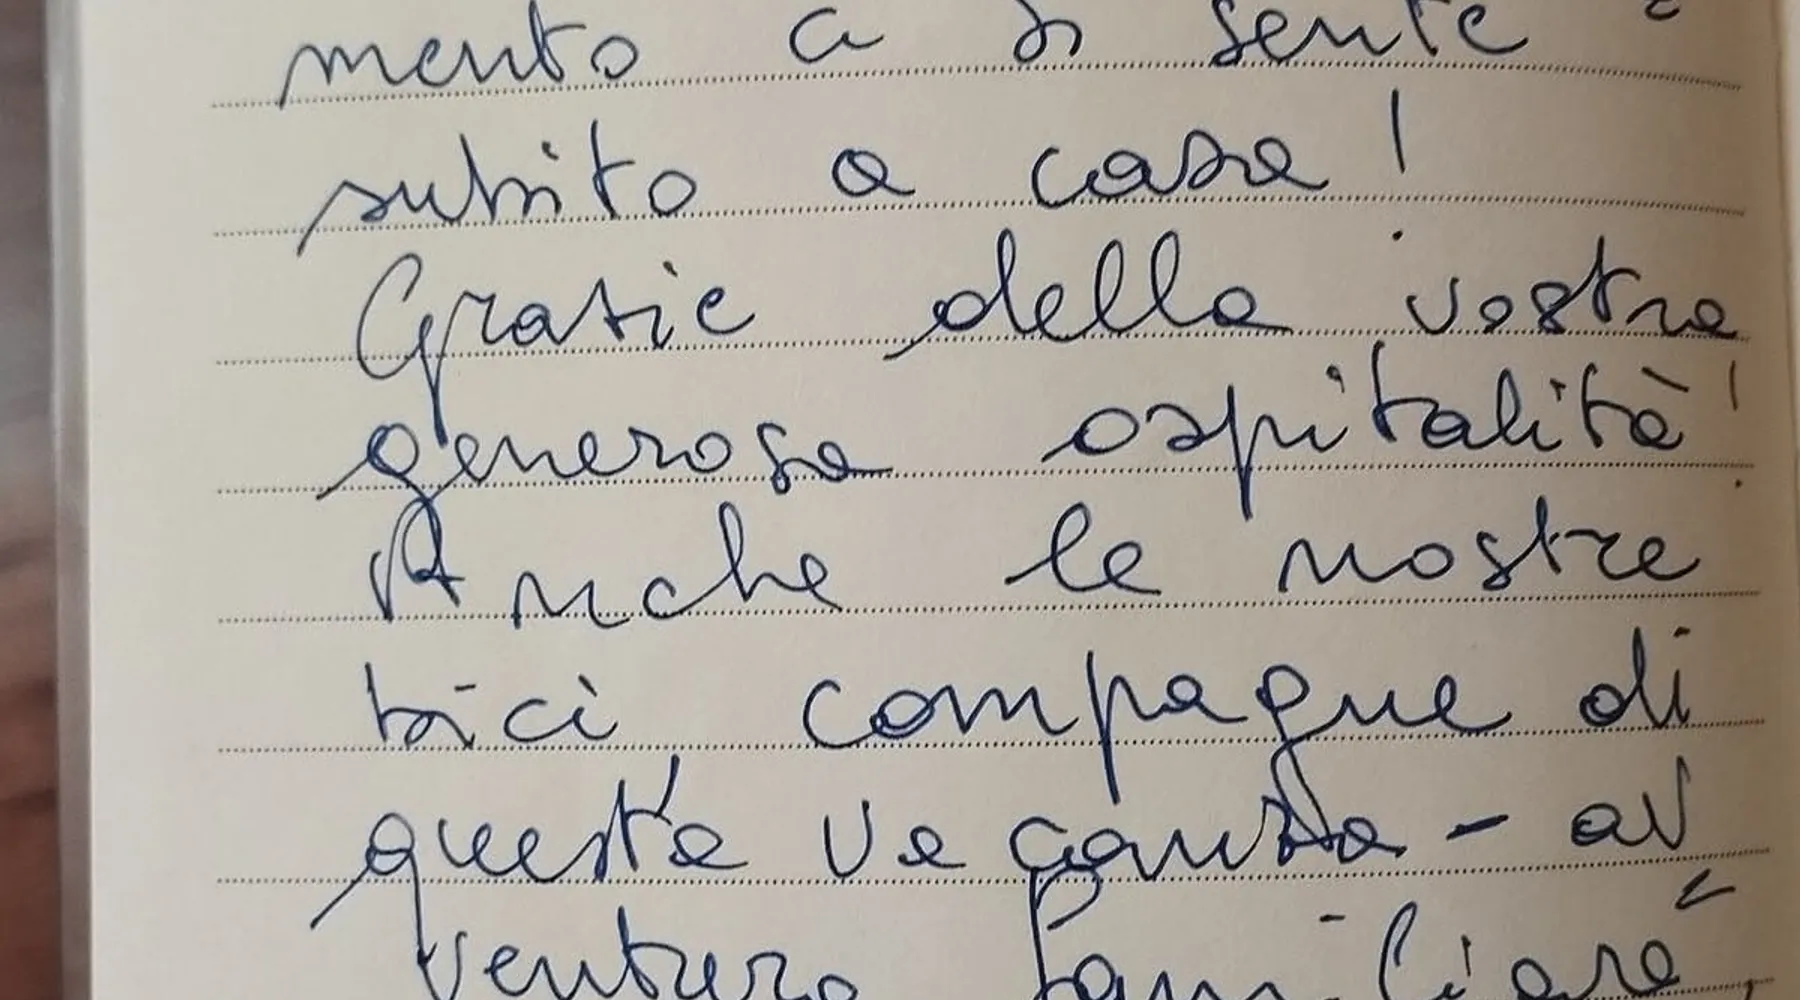 mento ci si sente
subito a casa!
Grazie della vostra
generosa ospitalità!
Anche le nostre
bici compagne di
questa vacanza - av
ventura familiare